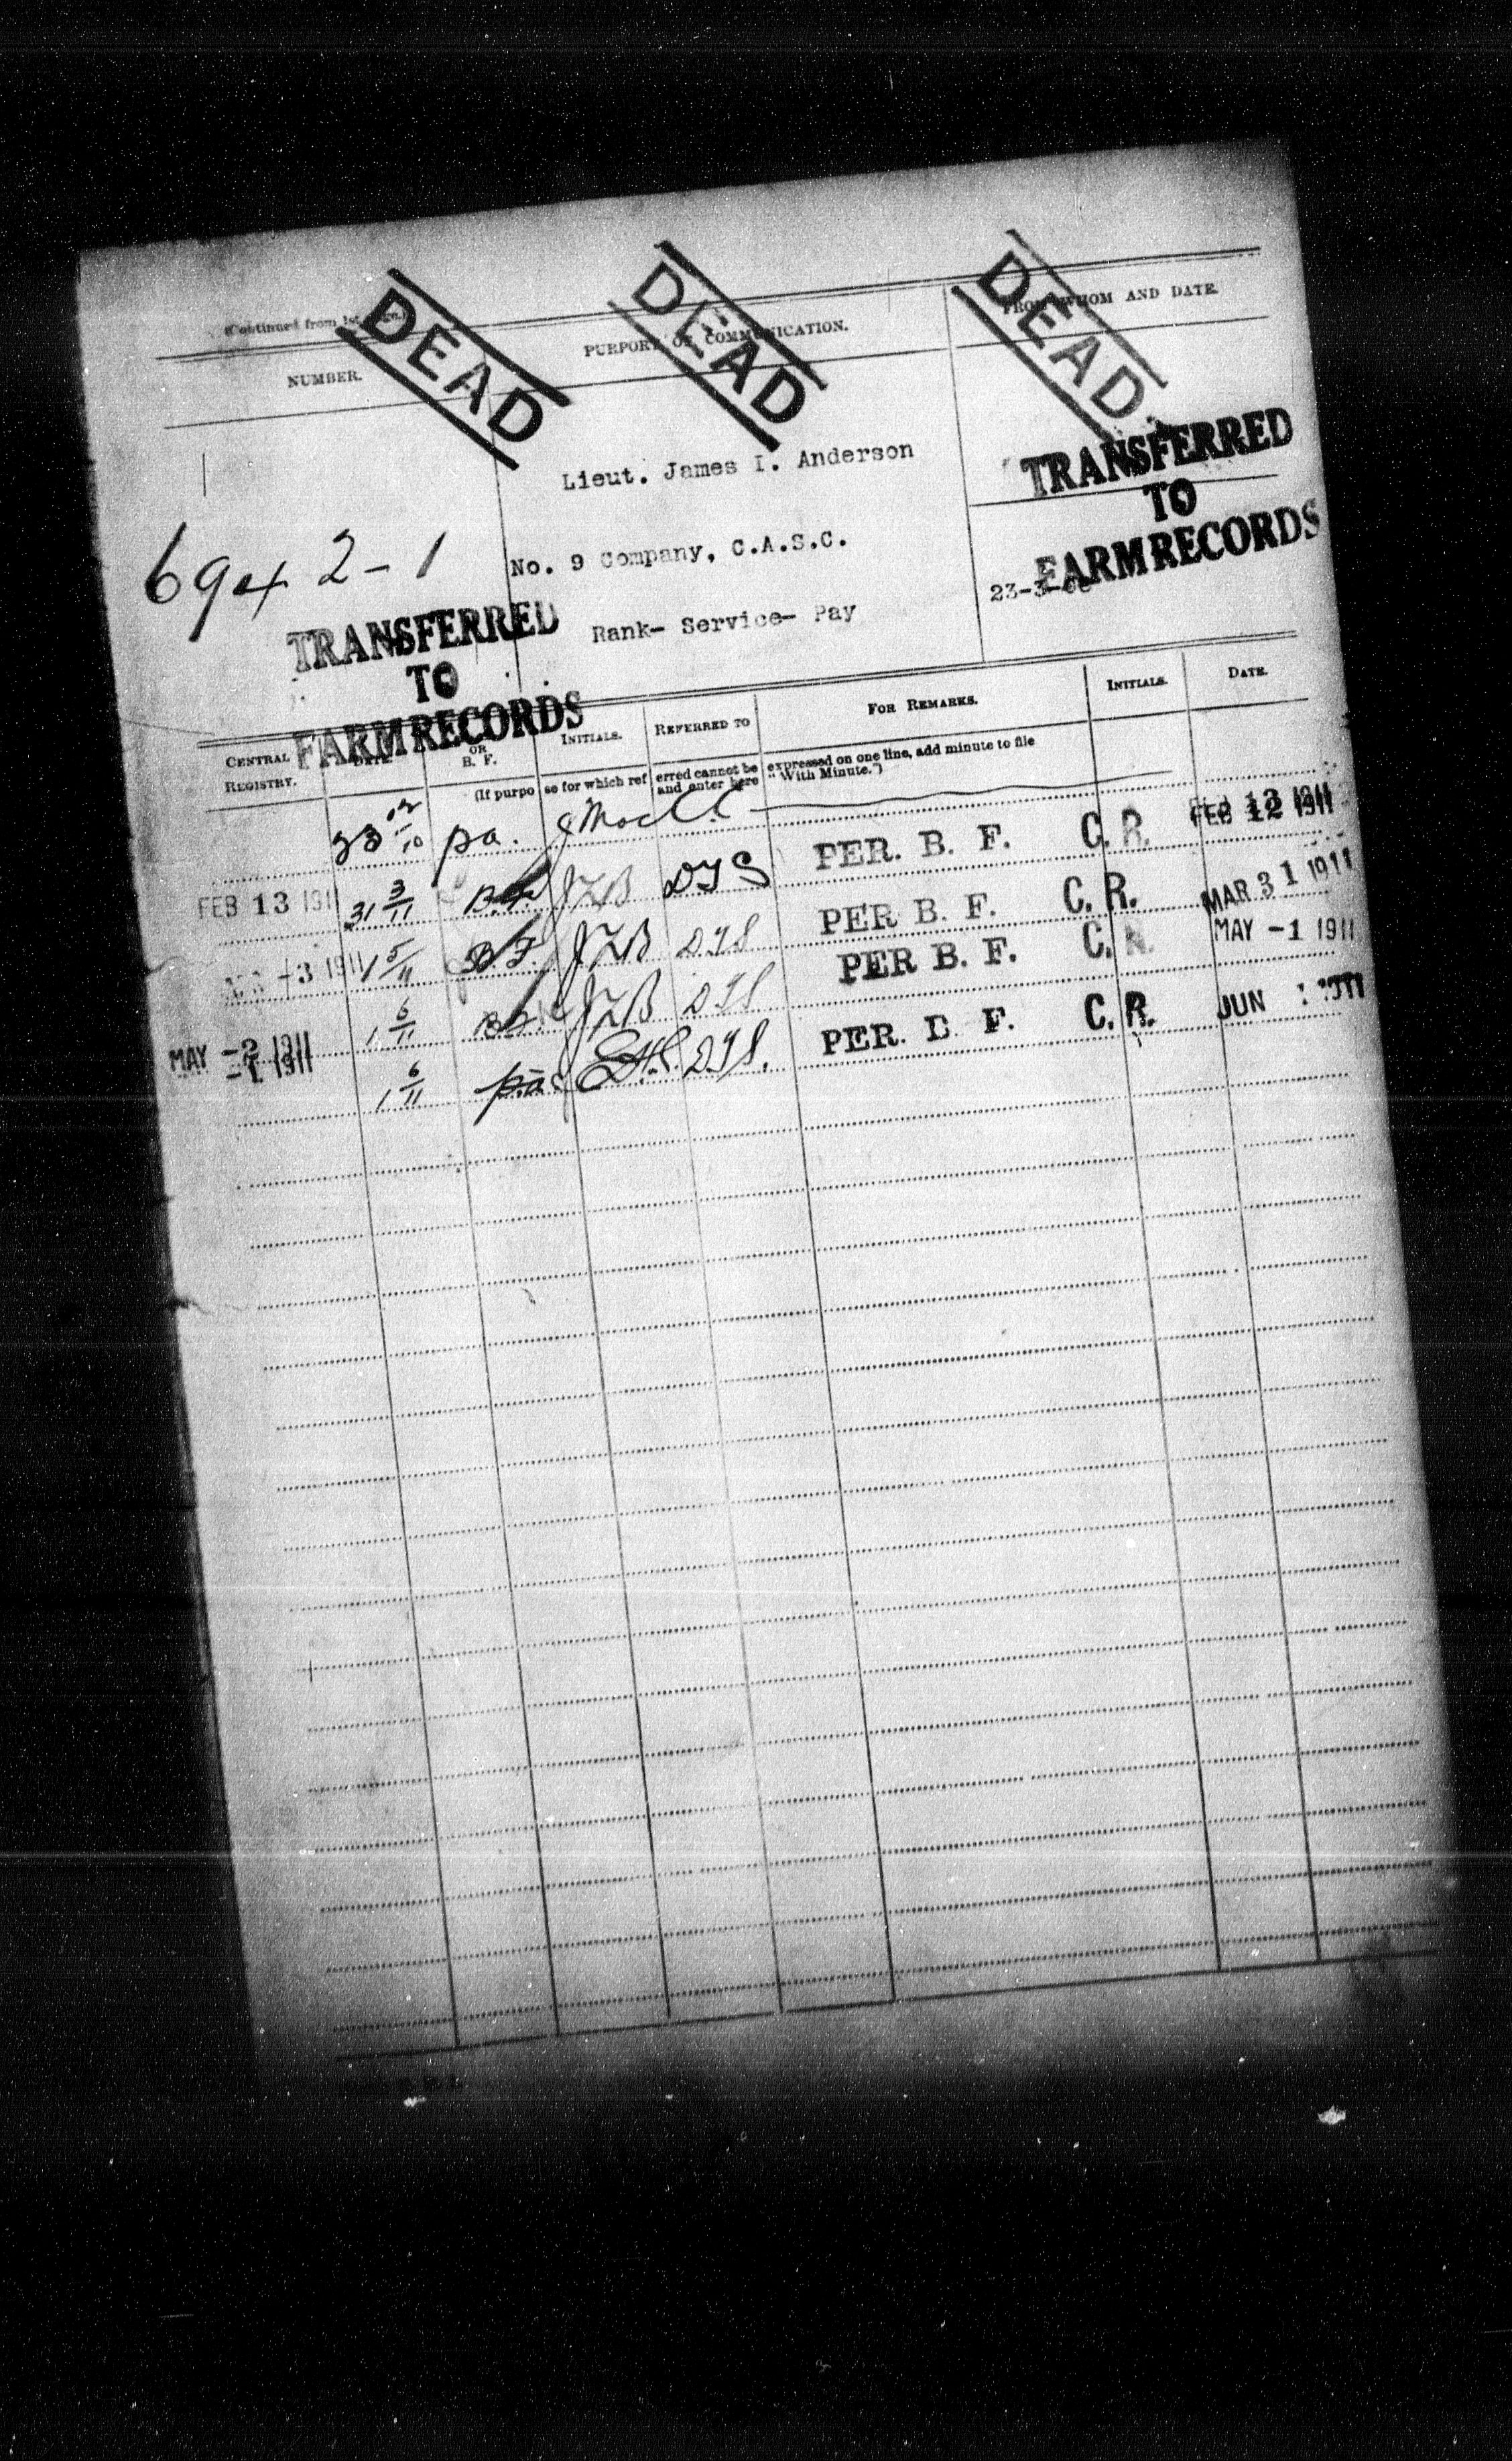 DEAD DEAD DEAD
(Continued from 1st
NUMBER. PURPORT OF COMMUNICATION. FROM WHOM AND DATE.
Lieut. James I. Anderson
TRANSFERRED
TO
FARM RECORDS
No. 9 Company, C.A.S.C.
23-3-
Rank- Service- Pay
TRANSFERRED
TO
FARM RECORDS
CENTRAL REGISTRY. DATE. OR B. F. INITIALS. REFERRED TO FOR REMARKS. INITIALS. DATE.
(If purpose for which referred cannot be expressed on one line, add minute to file
and enter here "With Minute.")
pa.
PER. B. F. C. R. FEB 1911
FEB 13 191 31 3/11 B.F. JZB DJS PER B. F. C. R. MAR 31 1911
-3 1911 1 5/11 B.F. JZB DJS PER B. F. C. MAY -1 1911
1 6/11 JZB DJS PER. F. C. R. JUN
MAY -2 1911
-1 1911
1 6/11 p.a. DJS.